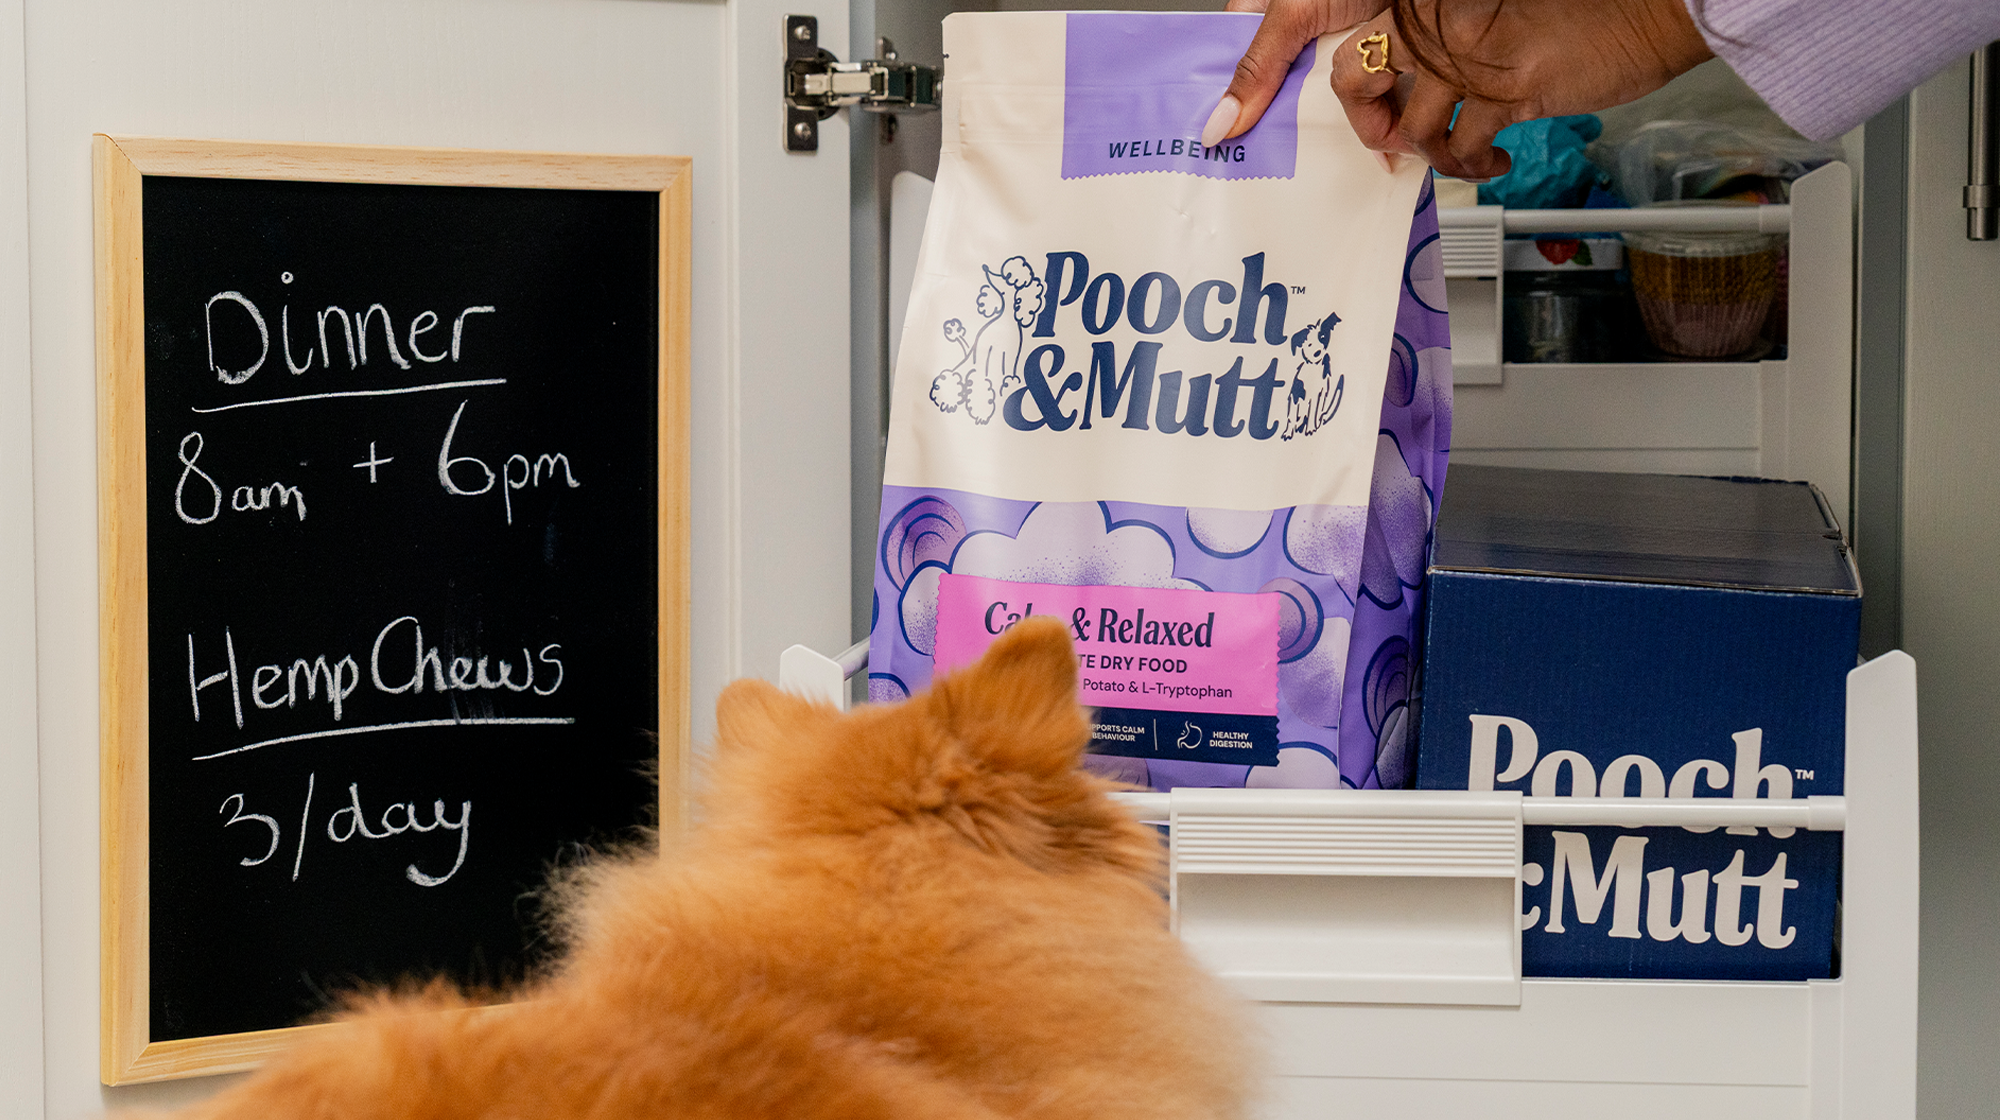 Dinner
8am + 6pm
Hemp Chews
3/day
WELLBEING
Pooch™
&Mutt
& Relaxed
DRY FOOD
Potato & L-Tryptophan
CALM
BEHAVIOUR
HEALTHY
DIGESTION
Pooch™
&Mutt